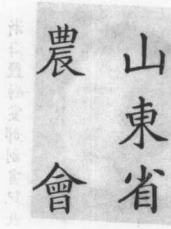 山東省
農會